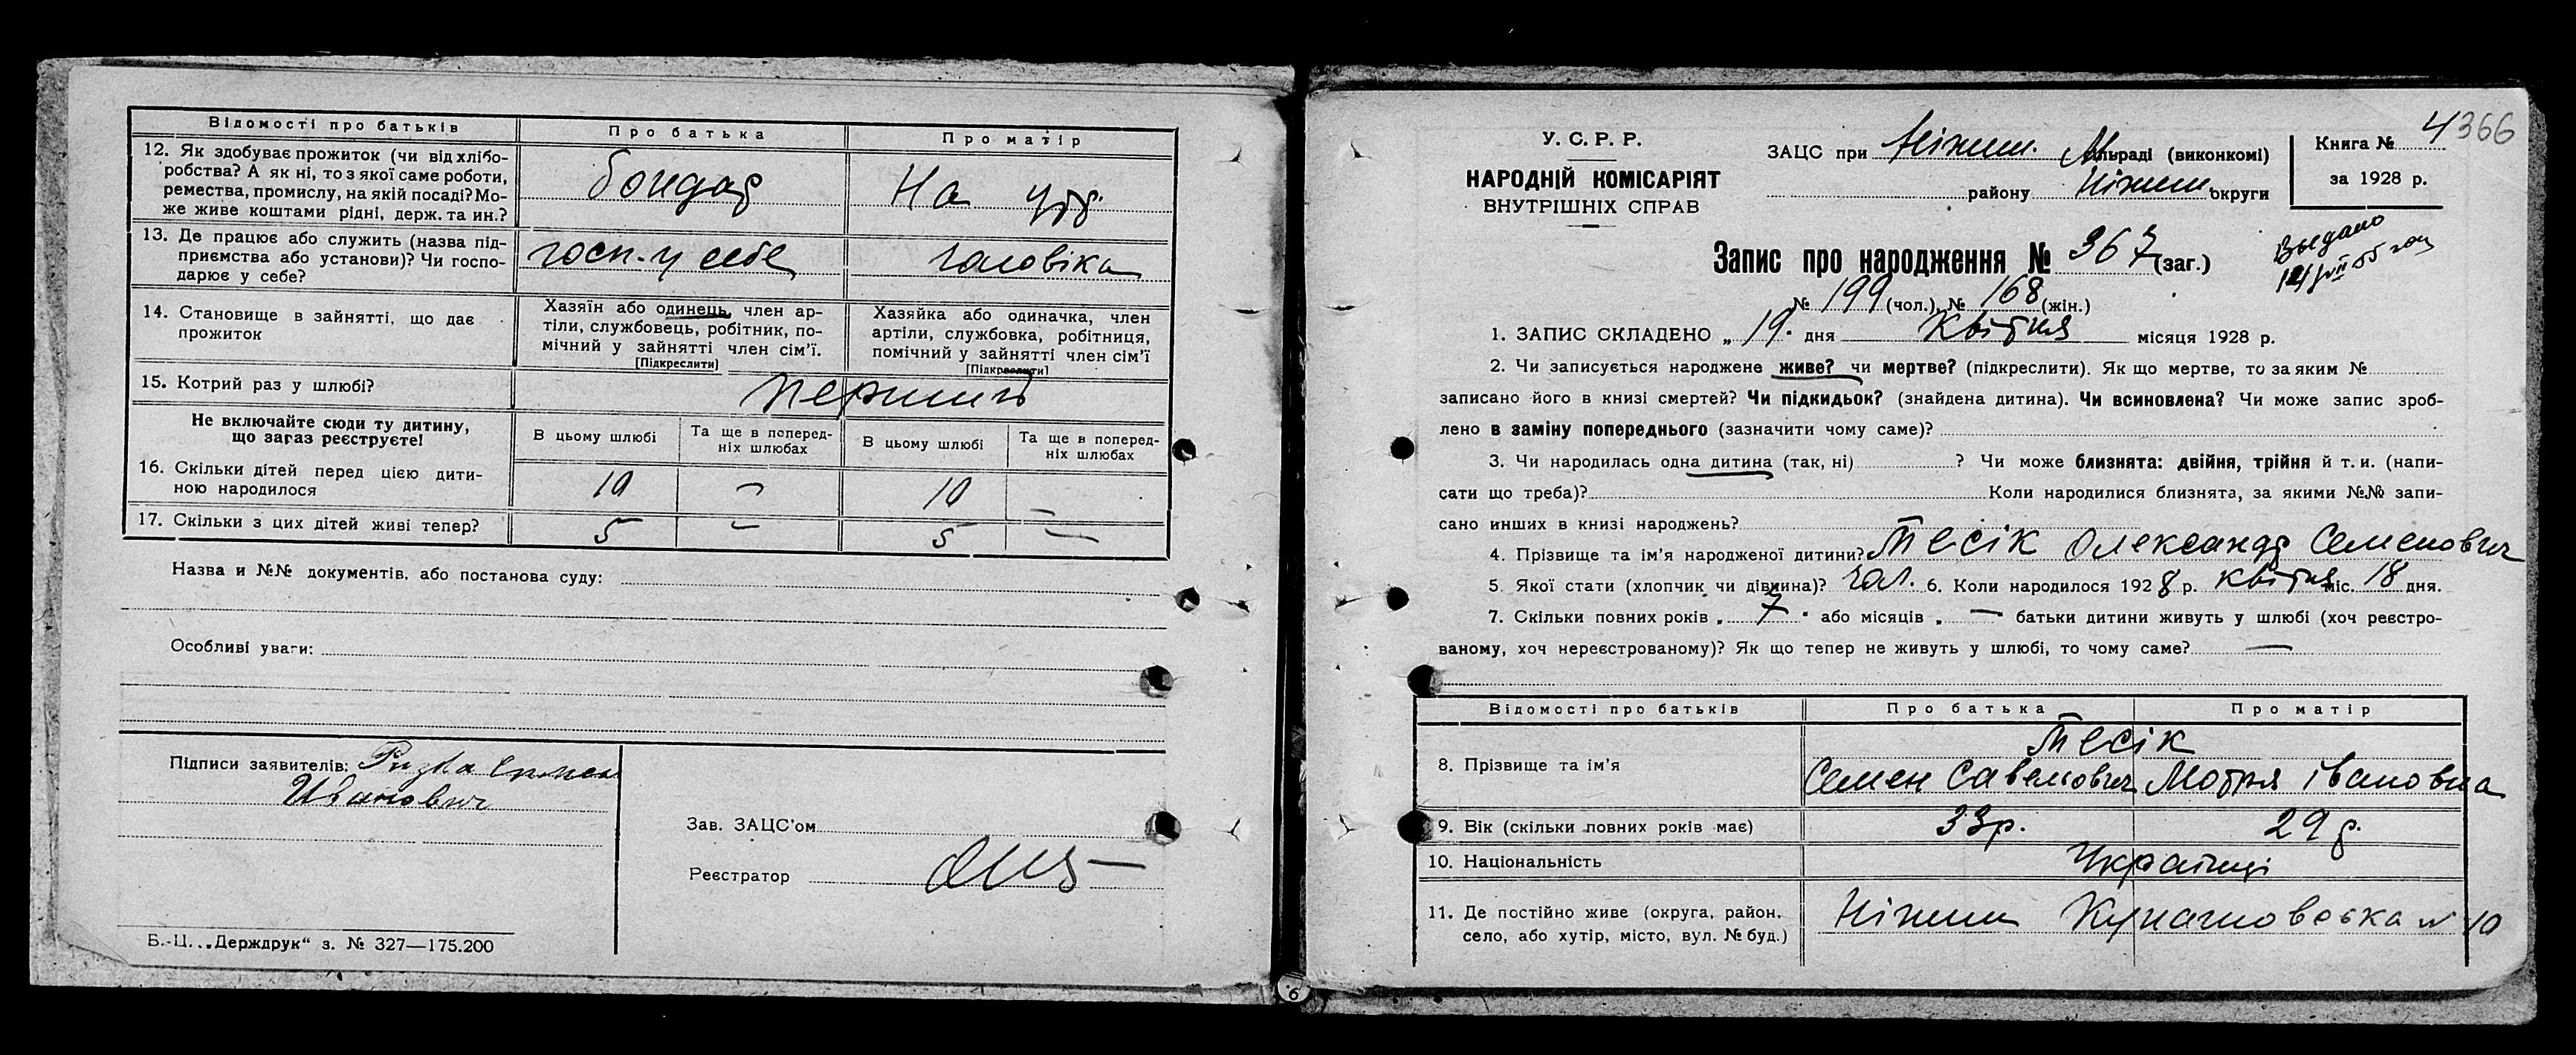 Відомості про батьків
Про батька
Про матір
12. Як здобуває прожиток (чи від хлібо-
робства? А як ні, то з якої саме роботи,
ремества, промислу, на якій посаді? Мо-
же живе коштами рідні, держ. та ин.?
бондар
На утр.
13. Де працює або служить (назва під-
приємства або установи)? Чи госпо-
дарює у себе?
госп. у себе
чоловіка
14. Становище в зайнятті, що дає
прожиток
Хазяїн або одинець, член ар-
тіли, службовець, робітник, по-
мічний у зайнятті член сім'ї.
[Підкреслити]
Хазяйка або одиначка, член
артіли, службовка, робітниця,
помічний у зайнятті член сім'ї
[Підкреслити]
15. Котрий раз у шлюбі?
перший
Не включайте сюди ту дитину,
що зараз реєструєте!
В цьому шлюбі
Та ще в поперед-
ніх шлюбах
В цьому шлюбі
Та ще в поперед-
ніх шлюбах
16. Скільки дітей перед цією дити-
ною народилося
10 — 10 —
17. Скільки з цих дітей живі тепер?
5 — 5 —
Назва и №№ документів, або постанова суду:
Особливі уваги:
Підписи заявителів:
Иванович
Зав. ЗАЦС'ом
Реєстратор
Б.-Ц. „Держдрук“ з. № 327—175.200
У. С. Р. Р.
НАРОДНІЙ КОМІСАРІЯТ
ВНУТРІШНІХ СПРАВ
ЗАЦС при Ніжин. М раді (виконкомі)
району Ніжин. округи
Книга № 4
366
за 1928 р.
Запис про народження № 367 (заг.)
Выдано
№ 199 (чол.), № 168 (жін.)
1. ЗАПИС СКЛАДЕНО „ 19. дня Квітня місяця 1928 р.
2. Чи записується народжене живе? чи мертве? (підкреслити). Як що мертве, то за яким №
записано його в книзі смертей? Чи підкидьок? (знайдена дитина). Чи всиновлена? Чи може запис зроб-
лено в заміну попереднього (зазначити чому саме)?
3. Чи народилась одна дитина (так, ні) ? Чи може близнята: двійня, трійня й т. и. (напи-
сати що треба)? Коли народилися близнята, за якими №№ запи-
сано инших в книзі народжень?
4. Прізвище та ім'я народженої дитини? Тесік Олександр Семенович
5. Якої стати (хлопчик чи дівчина)? чол. 6. Коли народилося 1928 р. квітня міс. 18 дня.
7. Скільки повних років „ 7 “ або місяців „ — “ батьки дитини живуть у шлюбі (хоч реєстро-
ваному, хоч нереєстрованому)? Як що тепер не живуть у шлюбі, то чому саме? —
Відомості про батьків
Про батька
Про матір
8. Прізвище та ім'я
Тесік
Семен Савелович
Мотря Івановна
9. Вік (скільки повних років має)
33р.
29 р.
10. Національність
Українці
11. Де постійно живе (округа, район,
село, або хутір, місто, вул. № буд.)
Ніжин Кунашовська № 10
6